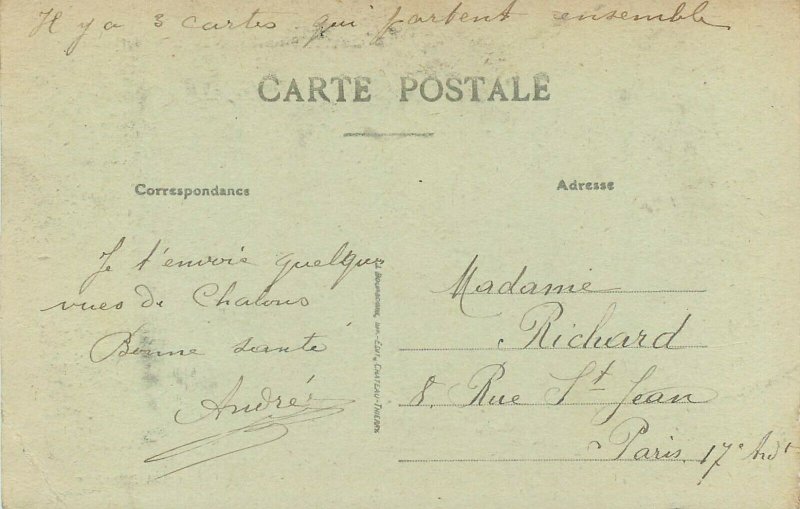 Il y a 3 cartes qui partent ensemble
CARTE POSTALE
Correspondance
Adresse
Je t'envoie quelques
vues de Chalons
Bonne santé
André
BOURGOGNE, IMP.-EDIT., CHATEAU-THIERRY
Madame
Richard
8. Rue St Jean
Paris 17e Ardt